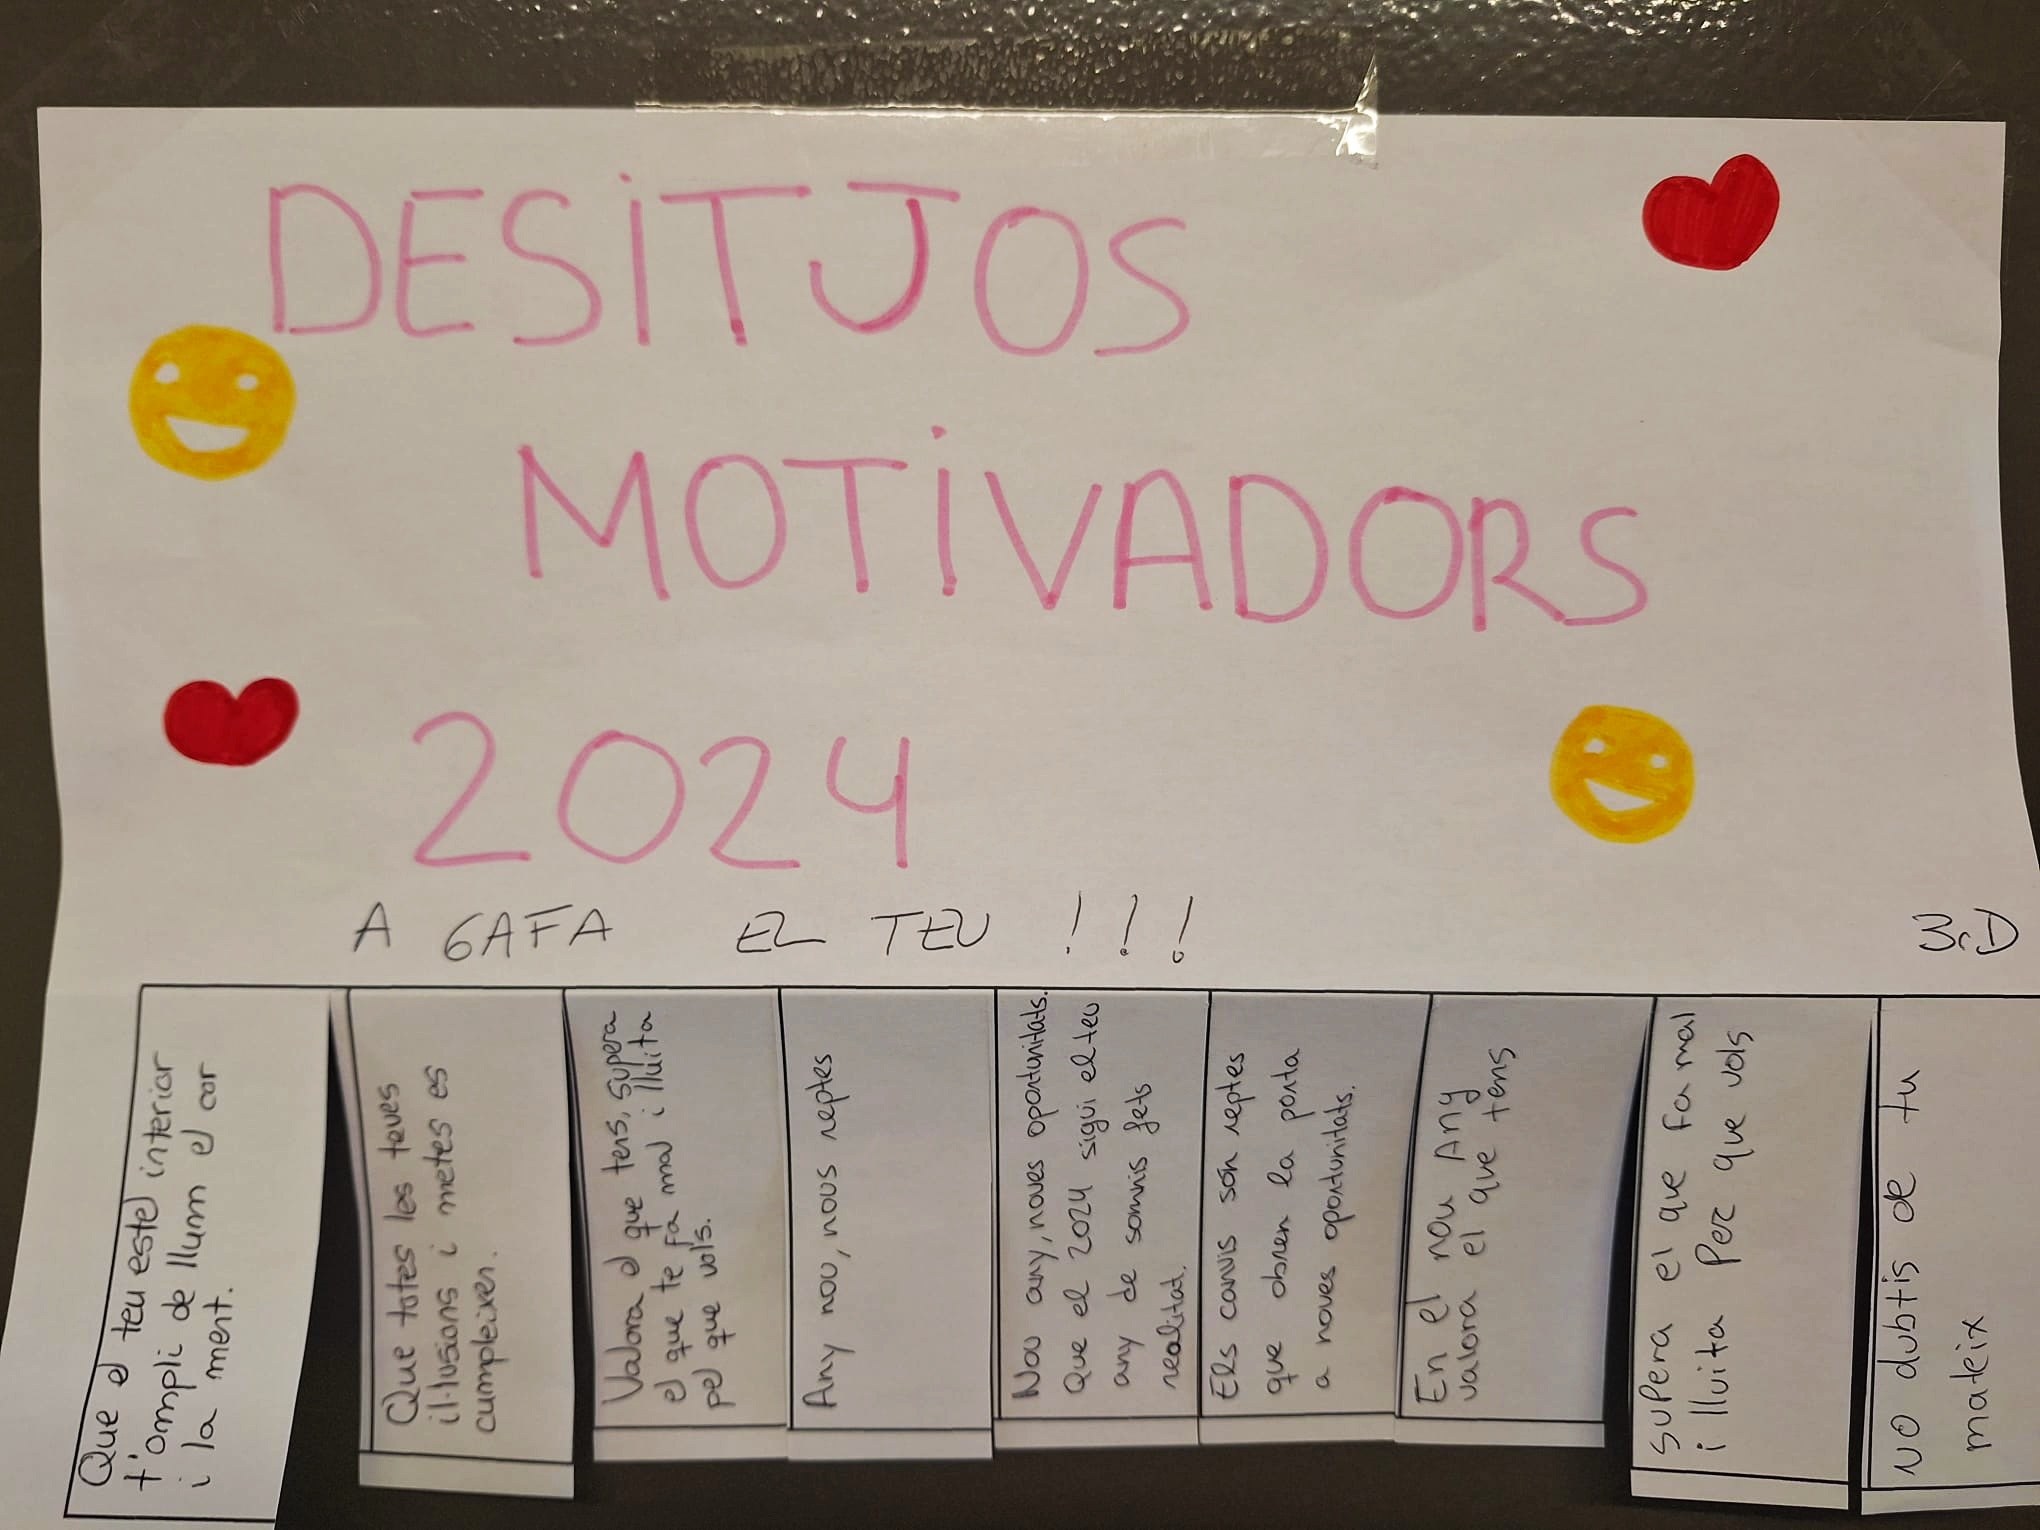 DESiTJOS
MOTiVADORS
2024
A GAFA EL TEU !!!
Que el teu estel interior
t'ompli de llum el cor
i la ment.
Que totes les teves
il·lusions i metes es
cumpleixen.
Valora el que tens, supera
el que te fa mal i lluita
pel que vols.
Any nou, nous reptes
Nou any, noves oportunitats.
Que el 2024 sigui el teu
any de somnis fets
realitat.
Els canvis són reptes
que obren la porta
a noves oportunitats.
En el nou Any
valora el que tens
supera el que fa mal
i lluita Per que vols
NO dubtis de tu
mateix